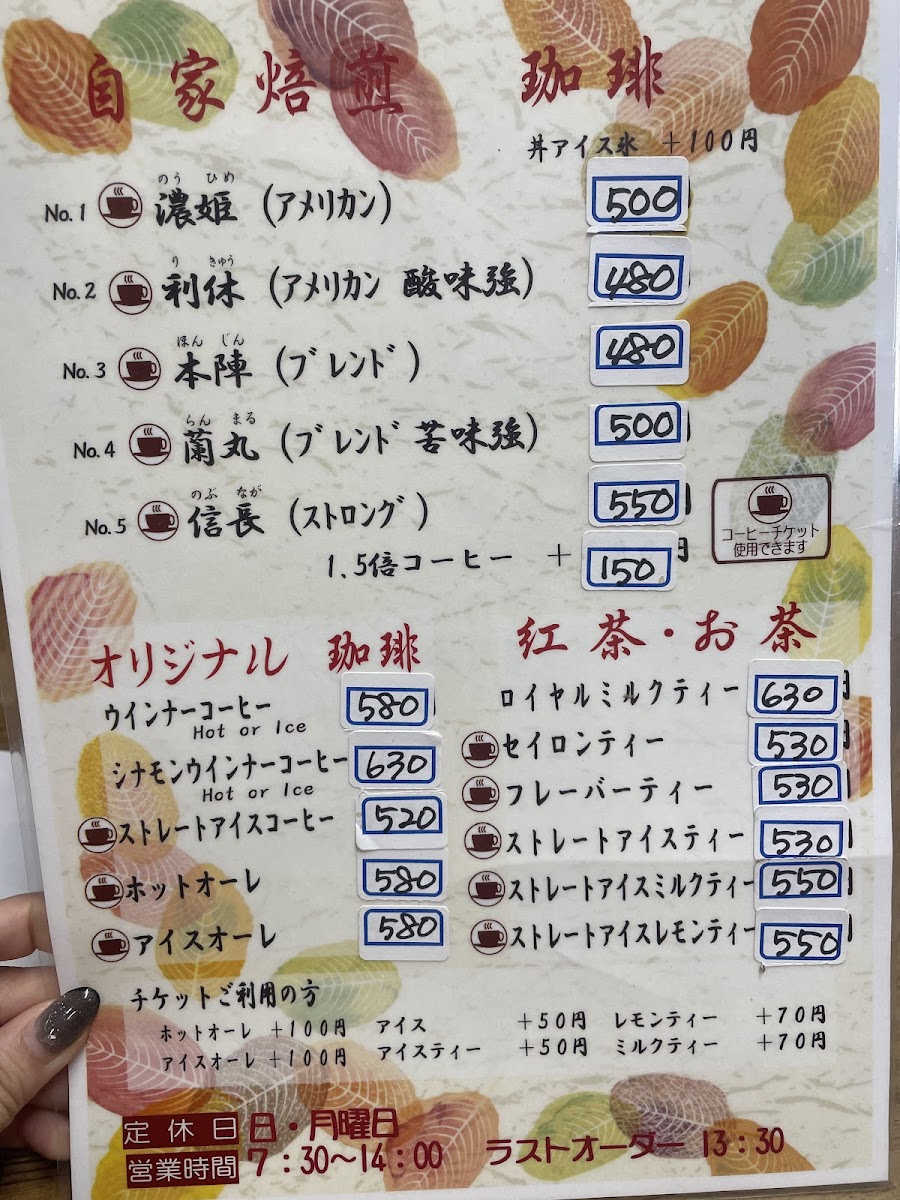 自家焙煎 珈琲
丼アイス氷 +100円
No.1 濃姫 (アメリカン) 500
のう ひめ
No.2 利休 (アメリカン 酸味強) 480
り きゅう
No.3 本陣 (ブレンド) 480
ほん じん
No.4 蘭丸 (ブレンド 苦味強) 500
らん まる
No.5 信長 (ストロング) 550
のぶ なが
1.5倍コーヒー + 150 円
コーヒーチケット
使用できます
オリジナル 珈琲
ウインナーコーヒー 580
Hot or Ice
シナモンウインナーコーヒー 630
Hot or Ice
ストレートアイスコーヒー 520
ホットオーレ 580
アイスオーレ 580
紅茶・お茶
ロイヤルミルクティー 630 円
セイロンティー 530
フレーバーティー 530
ストレートアイスティー 530
ストレートアイスミルクティー 550
ストレートアイスレモンティー 550
チケットご利用の方
ホットオーレ +100円 アイス +50円 レモンティー +70円
アイスオーレ +100円 アイスティー +50円 ミルクティー +70円
定休日 日・月曜日
営業時間 7:30〜14:00 ラストオーダー 13:30